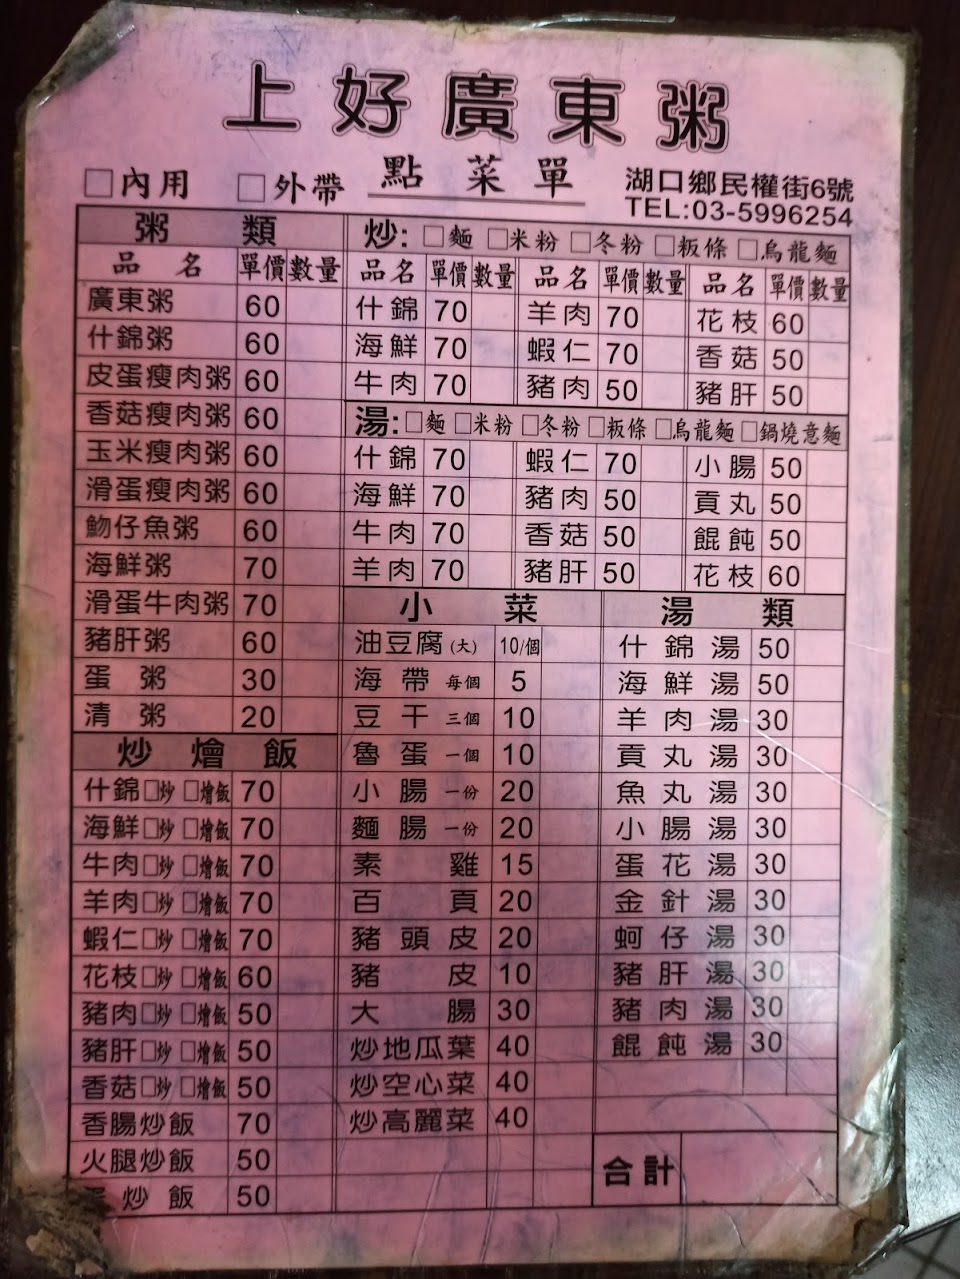 上好廣東粥
□內用 □外帶 點菜單
湖口鄉民權街6號
TEL:03-5996254
粥類
品名 單價 數量
廣東粥 60
什錦粥 60
皮蛋瘦肉粥 60
香菇瘦肉粥 60
玉米瘦肉粥 60
滑蛋瘦肉粥 60
魩仔魚粥 60
海鮮粥 70
滑蛋牛肉粥 70
豬肝粥 60
蛋粥 30
清粥 20
炒燴飯
什錦□炒□燴飯 70
海鮮□炒□燴飯 70
牛肉□炒□燴飯 70
羊肉□炒□燴飯 70
蝦仁□炒□燴飯 70
花枝□炒□燴飯 60
豬肉□炒□燴飯 50
豬肝□炒□燴飯 50
香菇□炒□燴飯 50
香腸炒飯 70
火腿炒飯 50
炒飯 50
炒:□麵 □米粉 □冬粉 □粄條 □烏龍麵
品名 單價 數量 品名 單價 數量 品名 單價 數量
什錦 70 羊肉 70 花枝 60
海鮮 70 蝦仁 70 香菇 50
牛肉 70 豬肉 50 豬肝 50
湯:□麵 □米粉 □冬粉 □粄條 □烏龍麵 □鍋燒意麵
什錦 70 蝦仁 70 小腸 50
海鮮 70 豬肉 50 貢丸 50
牛肉 70 香菇 50 餛飩 50
羊肉 70 豬肝 50 花枝 60
小菜
油豆腐(大) 10/個
海帶 每個 5
豆干 三個 10
魯蛋 一個 10
小腸 一份 20
麵腸 一份 20
素雞 15
百頁 20
豬頭皮 20
豬皮 10
大腸 30
炒地瓜葉 40
炒空心菜 40
炒高麗菜 40
湯類
什錦湯 50
海鮮湯 50
羊肉湯 30
貢丸湯 30
魚丸湯 30
小腸湯 30
蛋花湯 30
金針湯 30
蚵仔湯 30
豬肝湯 30
豬肉湯 30
餛飩湯 30
合計